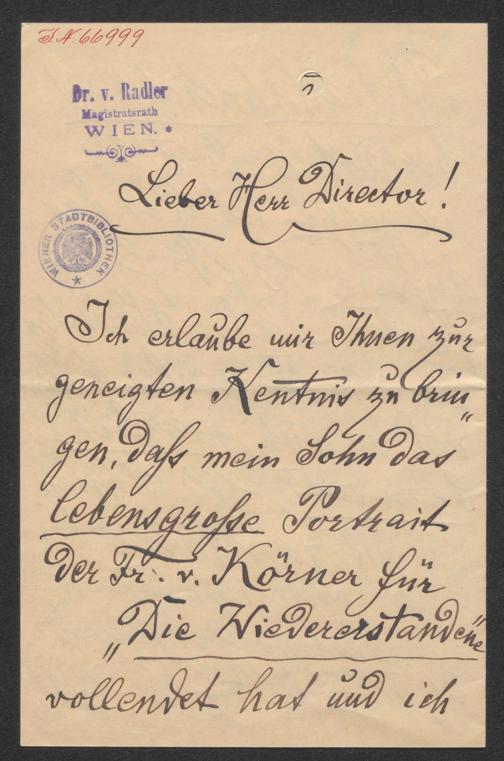 I.N. 66999
Dr. v. Radler
Magistratsrath
WIEN.
Lieber Herr Director!
WIENER STADTBIBLIOTHEK
Ich erlaube mir Ihnen zur
geneigten Kentnis zu brin„
gen, daſs mein Sohn das
lebensgroſse Portrait
der Fr: v. Körner für
„Die Wiedererstandene"
vollendet hat und ich